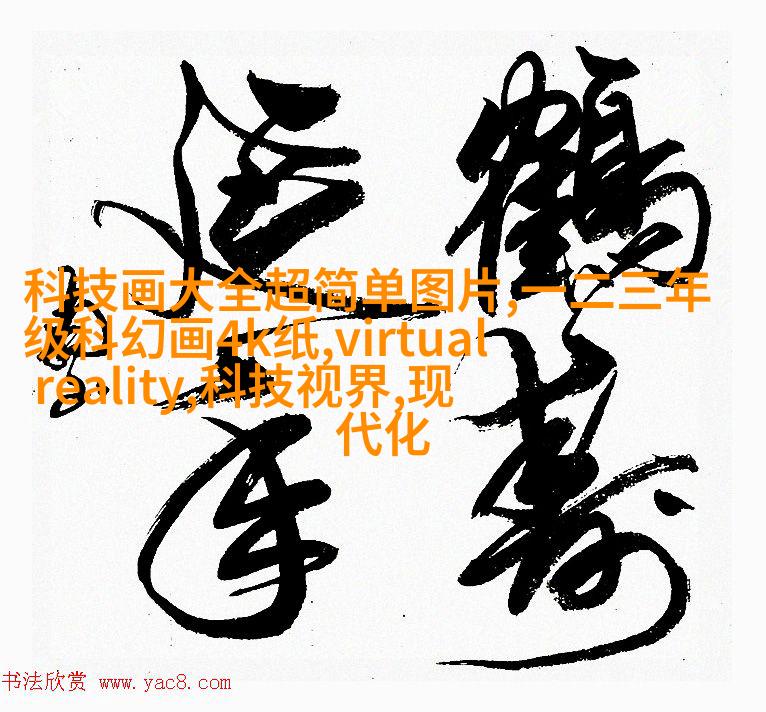 鹤寿
延年
科技画大全超简单图片,一二三年
级科幻画4k纸,virtual
reality,科技视界,现
代化
书法欣赏 www.yac8.com